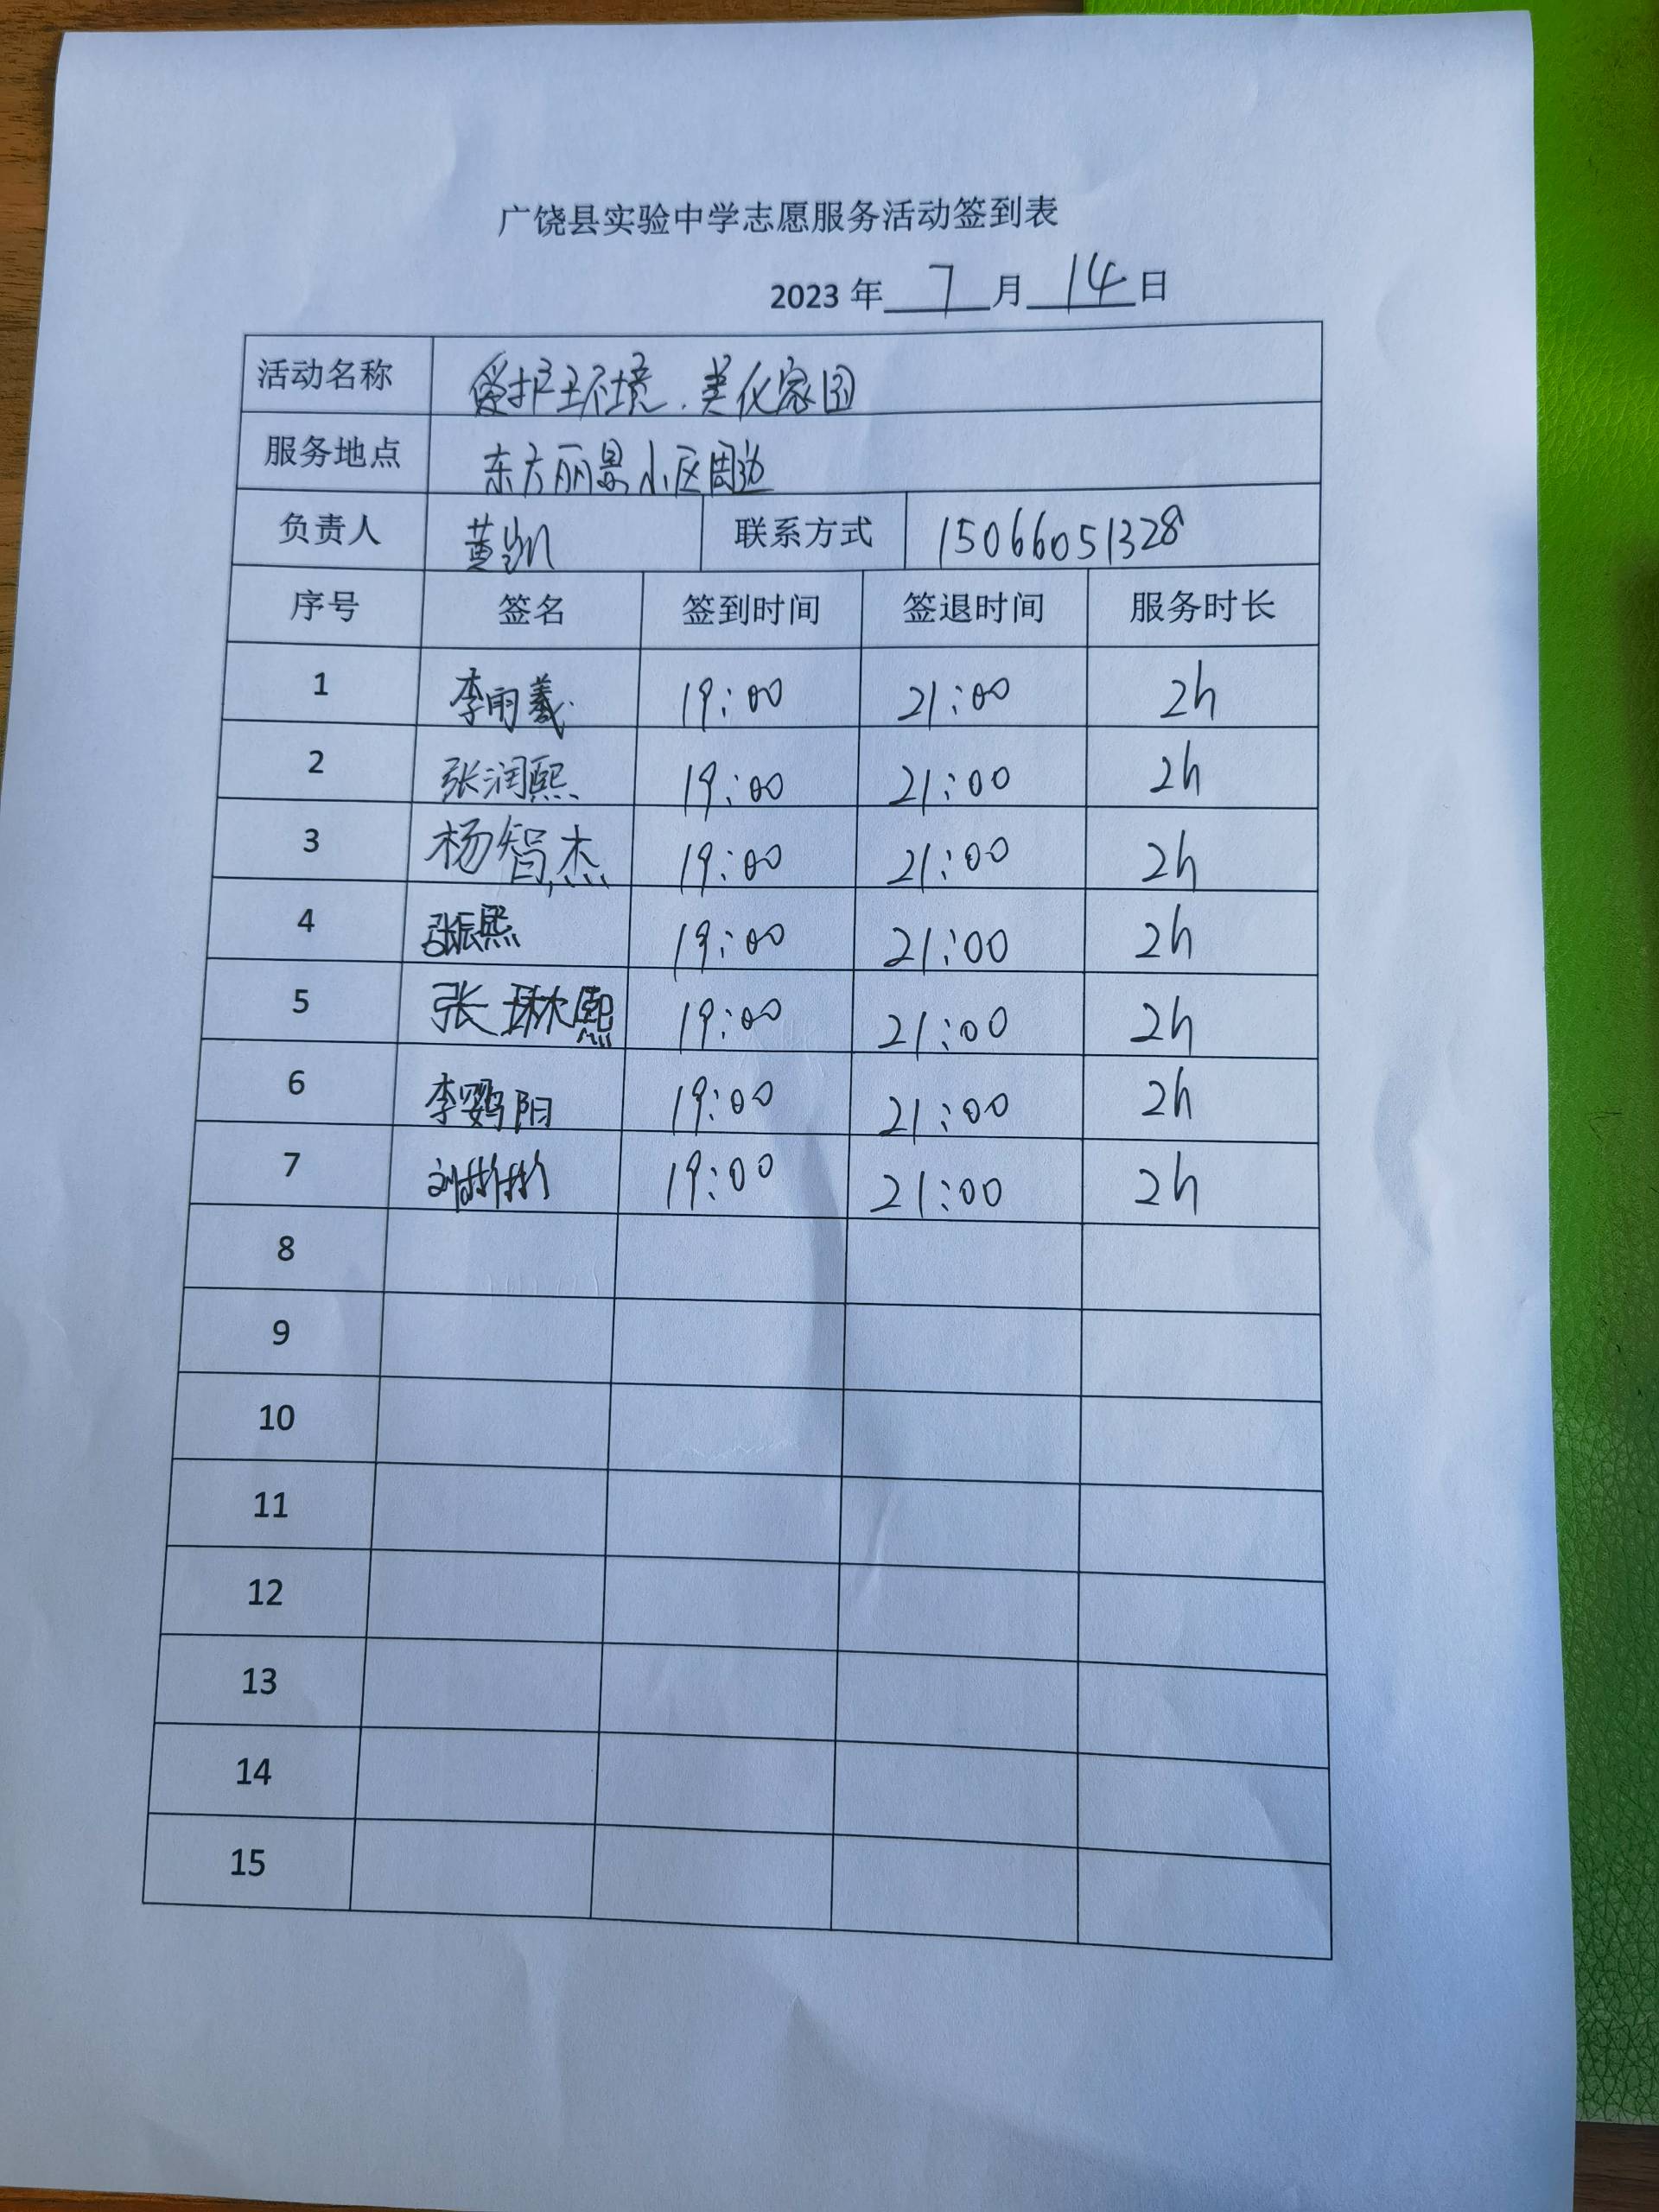 广饶县实验中学志愿服务活动签到表
2023 年 7 月 14 日
活动名称 爱护环境.美化家园
服务地点 东方丽景小区周边
负责人 黄凯 联系方式 15066051328
序号 签名 签到时间 签退时间 服务时长
1 李雨羲 19:00 21:00 2h
2 张润熙 19:00 21:00 2h
3 杨智杰 19:00 21:00 2h
4 张宸熙 19:00 21:00 2h
5 张琳熙 19:00 21:00 2h
6 李鹦阳 19:00 21:00 2h
7 19:00 21:00 2h
8
9
10
11
12
13
14
15